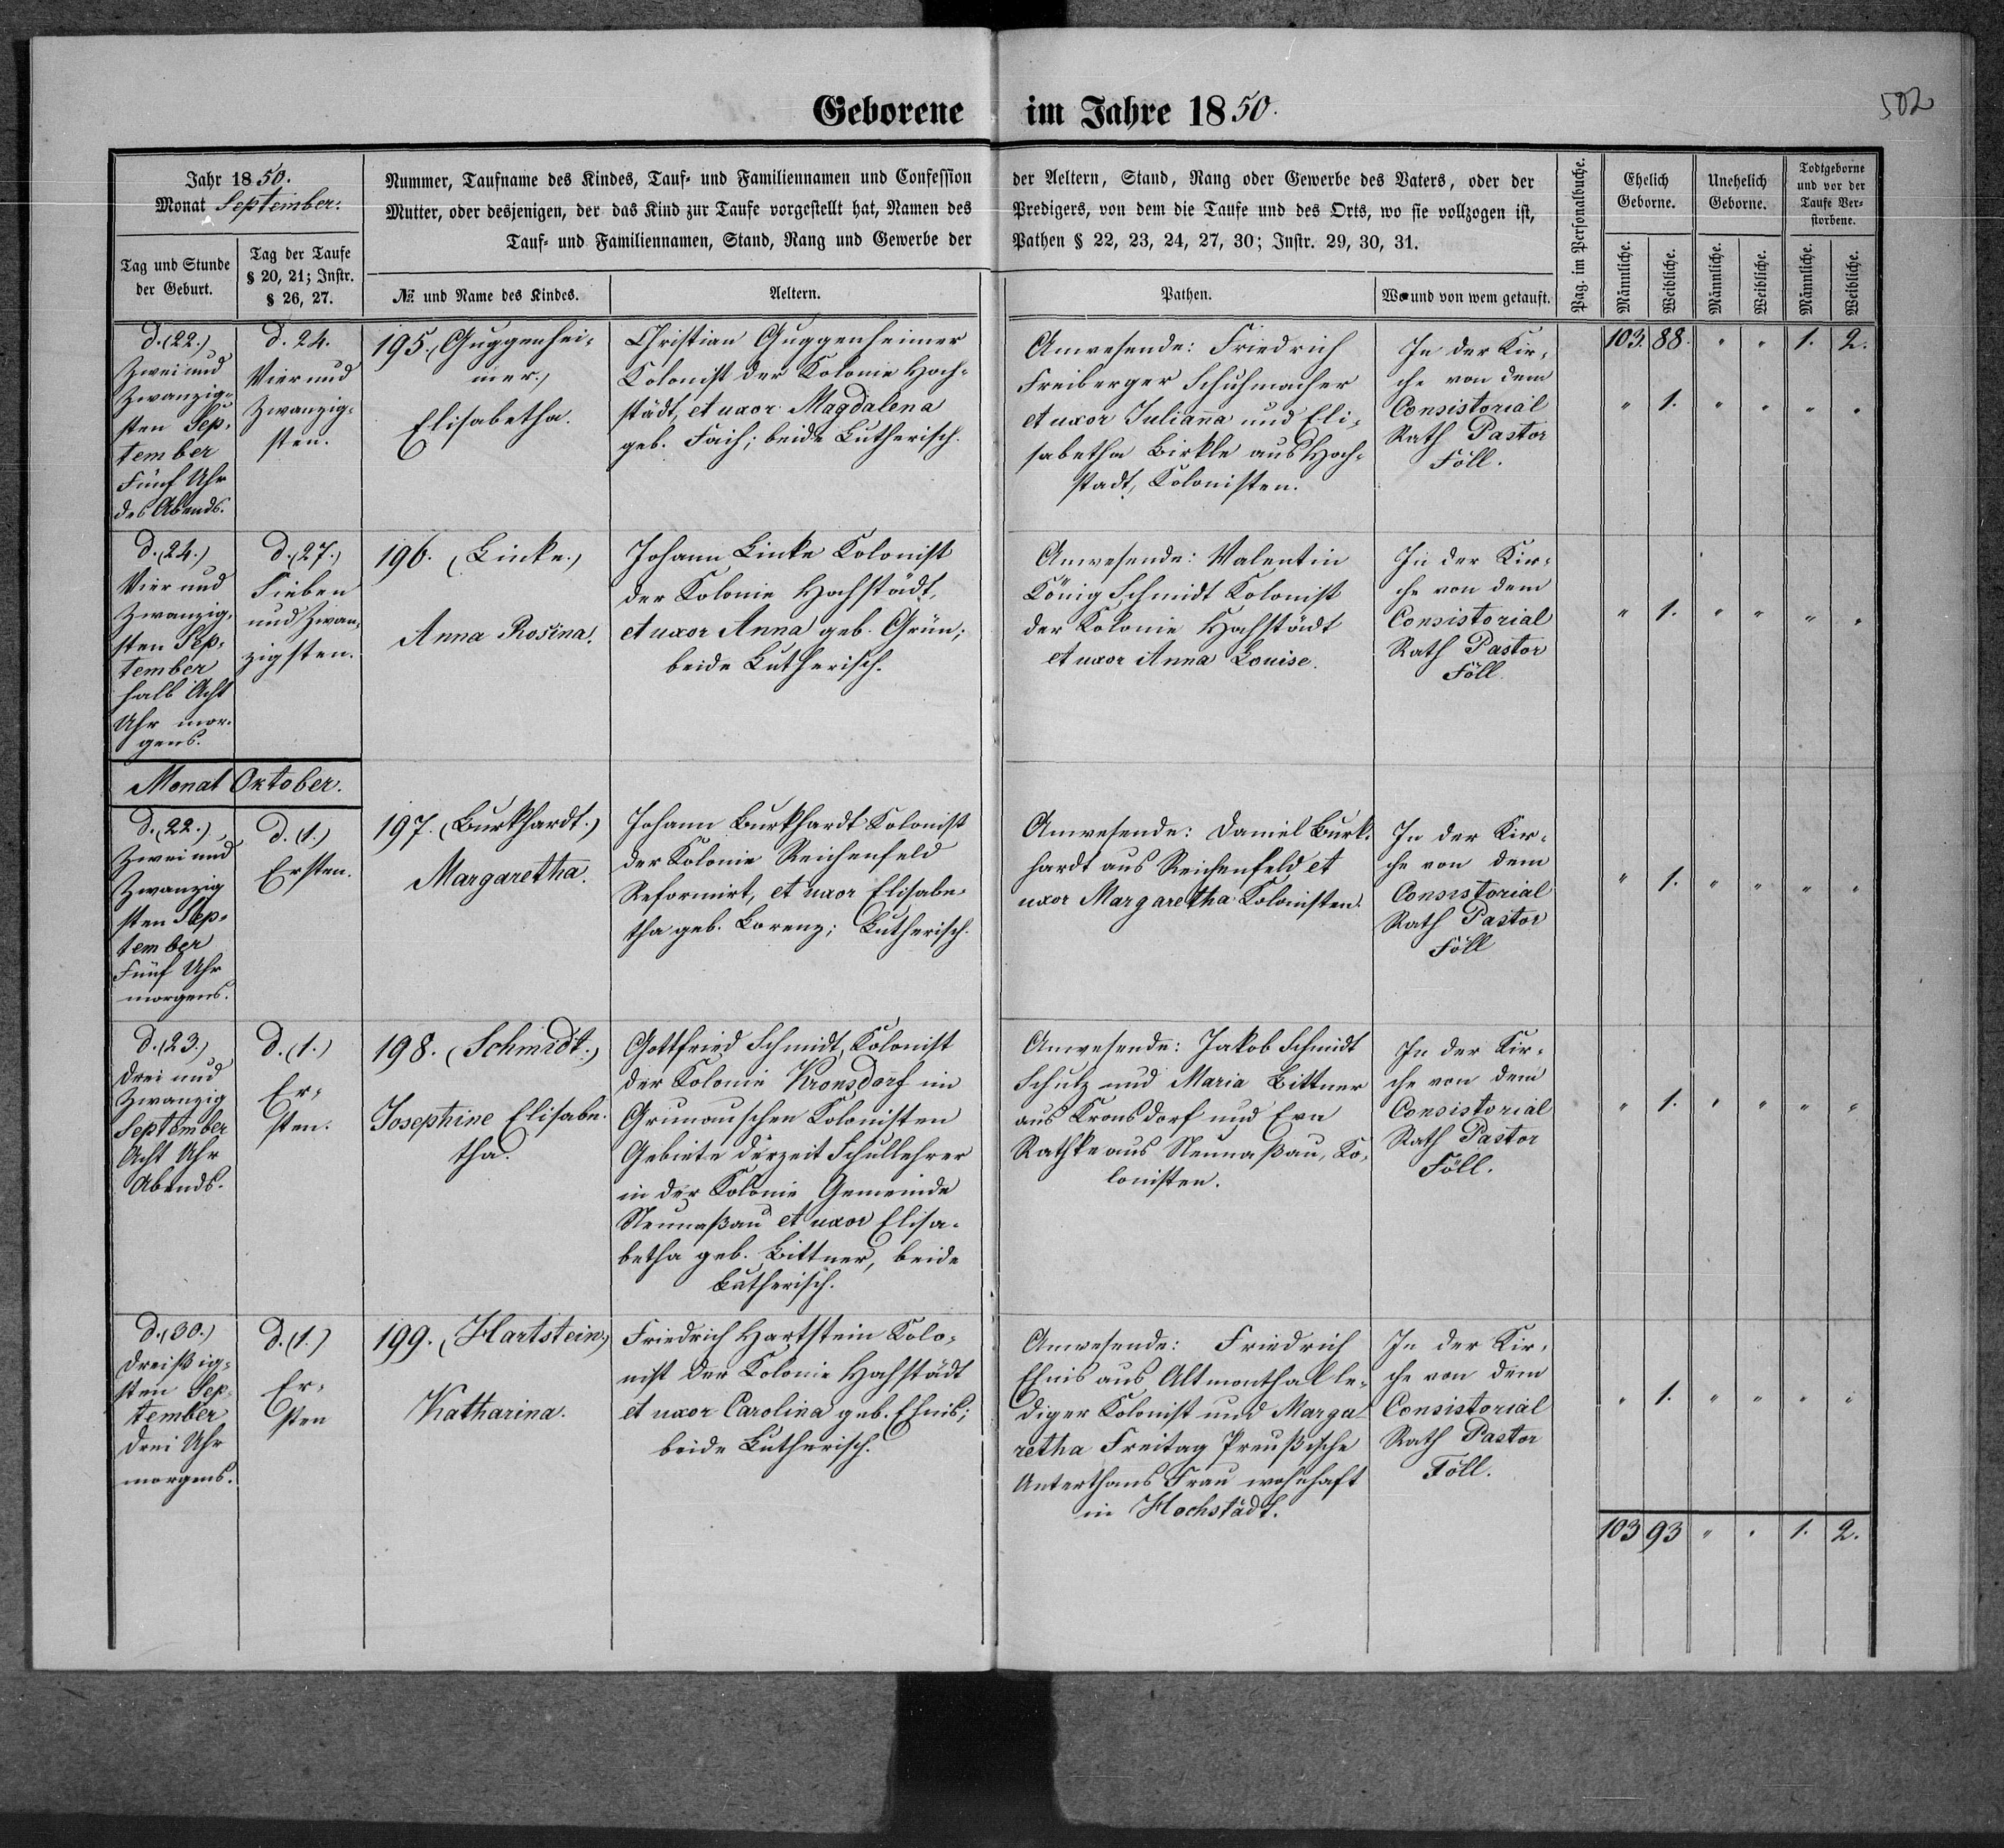 Geborene im Jahre 1850.
502
Jahr 1850.
Monat September.
Nummer, Taufname des Kindes, Tauf- und Familiennamen und Confession
der Aeltern, Stand, Rang oder Gewerbe des Vaters, oder der
Mutter, oder desjenigen, der das Kind zur Taufe vorgestellt hat, Namen des
Predigers, von dem die Taufe und des Orts, wo sie vollzogen ist,
Tauf- und Familiennamen, Stand, Rang und Gewerbe der
Pathen § 22, 23, 24, 27, 30; Instr. 29, 30, 31.
Tag und Stunde
der Geburt.
Tag der Taufe
§ 20, 21; Instr.
§ 26, 27.
№ und Name des Kindes.
Aeltern.
Pathen.
Wo und von wem getauft.
Pag. im Personalbuche.
Ehelich
Geborne.
Unehelich
Geborne.
Todtgeborne
und vor der
Taufe Ver-
storbene.
Männliche.
Weibliche.
Männliche.
Weibliche.
Männliche.
Weibliche.
d. (22.)
Zwei und
Zwanzig-
sten Sep-
tember
Fünf Uhr
des Abends.
d. 24.
Vier und
Zwanzig-
sten.
195. (Guggenhei-
mer.)
Elisabetha.
Christian Guggenheimer
Kolonist der Kolonie Hoch-
städt, et uxor Magdalena
geb. Faich; beide Lutherisch.
Anwesende: Friedrich
Freiberger Schuhmacher
et uxor Julianna und Eli-
sabetha Birkle aus Hoch-
stadt, Kolonisten.
In der Kir-
che von dem
Consistorial
Rath Pastor
Föll.
103. 88. " " 1. 2.
" 1. " " " "
d. (24.)
Vier und
Zwanzig-
sten Sep-
tember
halb Acht
Uhr mor-
gens.
d. (27.)
Sieben
und Zwan-
zigsten.
196. (Linke.)
Anna Rosina.
Johann Linke Kolonist
der Kolonie Hochstädt,
et uxor Anna geb. Grün;
beide Lutherisch.
Anwesende: Valentin
König Schmidt Kolonist
der Kolonie Hochstädt
et uxor Anna Louise.
In der Kir-
che von dem
Consistorial
Rath Pastor
Föll.
" 1. " " " "
Monat Oktober.
d. (22.)
Zwei und
Zwanzig
sten Sep-
tember
Fünf Uhr
morgens.
d. (1.)
Ersten.
197. (Burkhardt.)
Margaretha.
Johann Burkhardt Kolonist
der Kolonie Reichenfeld
Reformirt, et uxor Elisabe-
tha geb. Lorenz; Lutherisch.
Anwesende: Daniel Burk-
hardt aus Reichenfeld et
uxor Margaretha Kolonisten.
In der Kir-
che von dem
Consistorial
Rath Pastor
Föll
" 1. " " " "
d. (23.)
Drei und
Zwanzig
September
Acht Uhr
Abends.
d. (1.)
Er-
sten.
198. (Schmidt.)
Josephine Elisabe-
tha.
Gottfried Schmidt, Kolonist
der Kolonie Kronsdorf im
Grunauschen Kolonisten
Gebiete derzeit Schullehrer
in der Kolonie Gemeinde
Neunaßau et uxor Elisa-
betha geb. Bittner, beide
Lutherisch.
Anwesende: Jakob Schmidt
Schulz und Maria Bittner
aus Kronsdorf und Eva
Rathke aus Neunaßau, Ko-
lonisten.
In der Kir-
che von dem
Consistorial
Rath Pastor
Föll.
" 1. " " " "
d. (30.)
Dreißig-
sten Sep-
tember
Drei Uhr
morgens.
d. (1.)
Er-
sten
199. (Hartstein.)
Katharina.
Friedrich Hartstein Kolo-
nist der Kolonie Hochstädt
et uxor Carolina geb. Ehnis;
beide Lutherisch.
Anwesende: Friedrich
Ehnis aus Altmonthal le-
diger Kolonist und Marga-
retha Freitag Preußische
Unterthans Frau wohnhaft
in Hochstädt.
In der Kir-
che von dem
Consistorial
Rath Pastor
Föll.
" 1. " " " "
103 93 " " 1. 2.